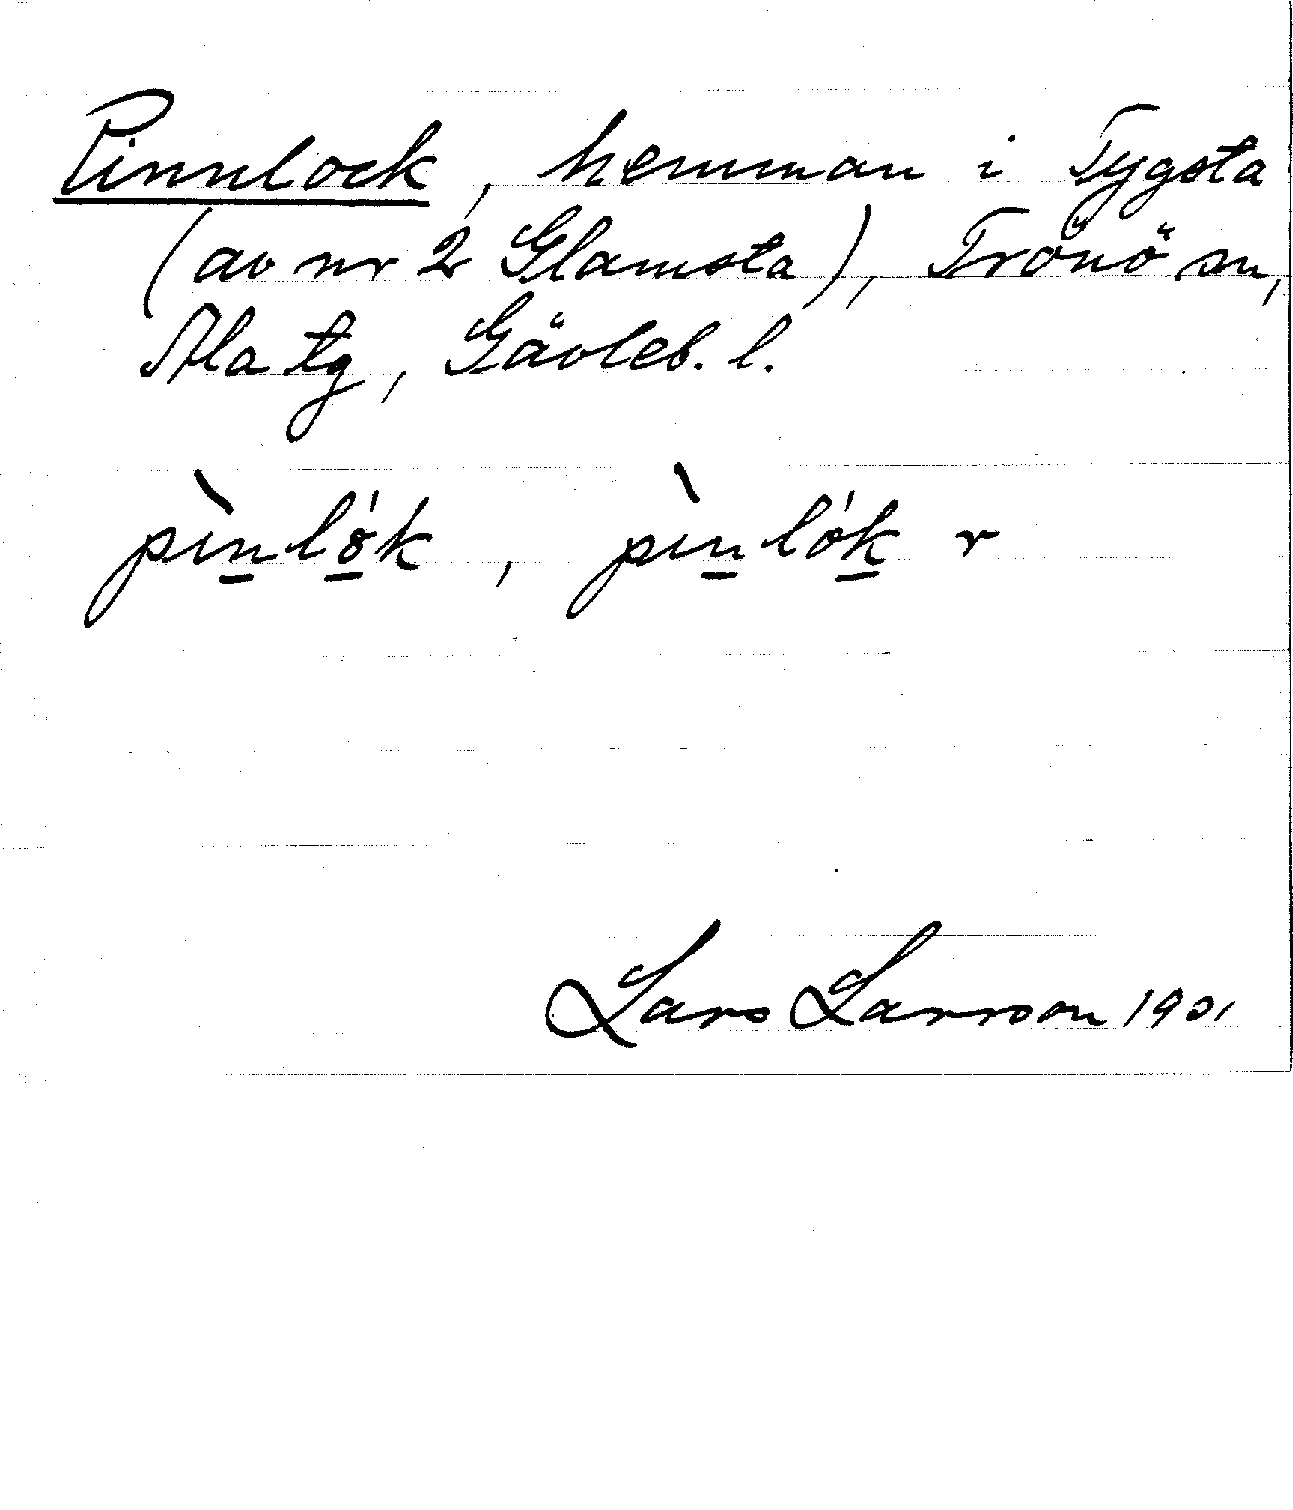 Pinnlock, hemman i Tygsta
(av nr 2 Glamsta), Trönö sn,
Ala tg, Gävleb. l.
pìn̲ló̲k, pìn̲lók̲ r
Lars Larsson 1901